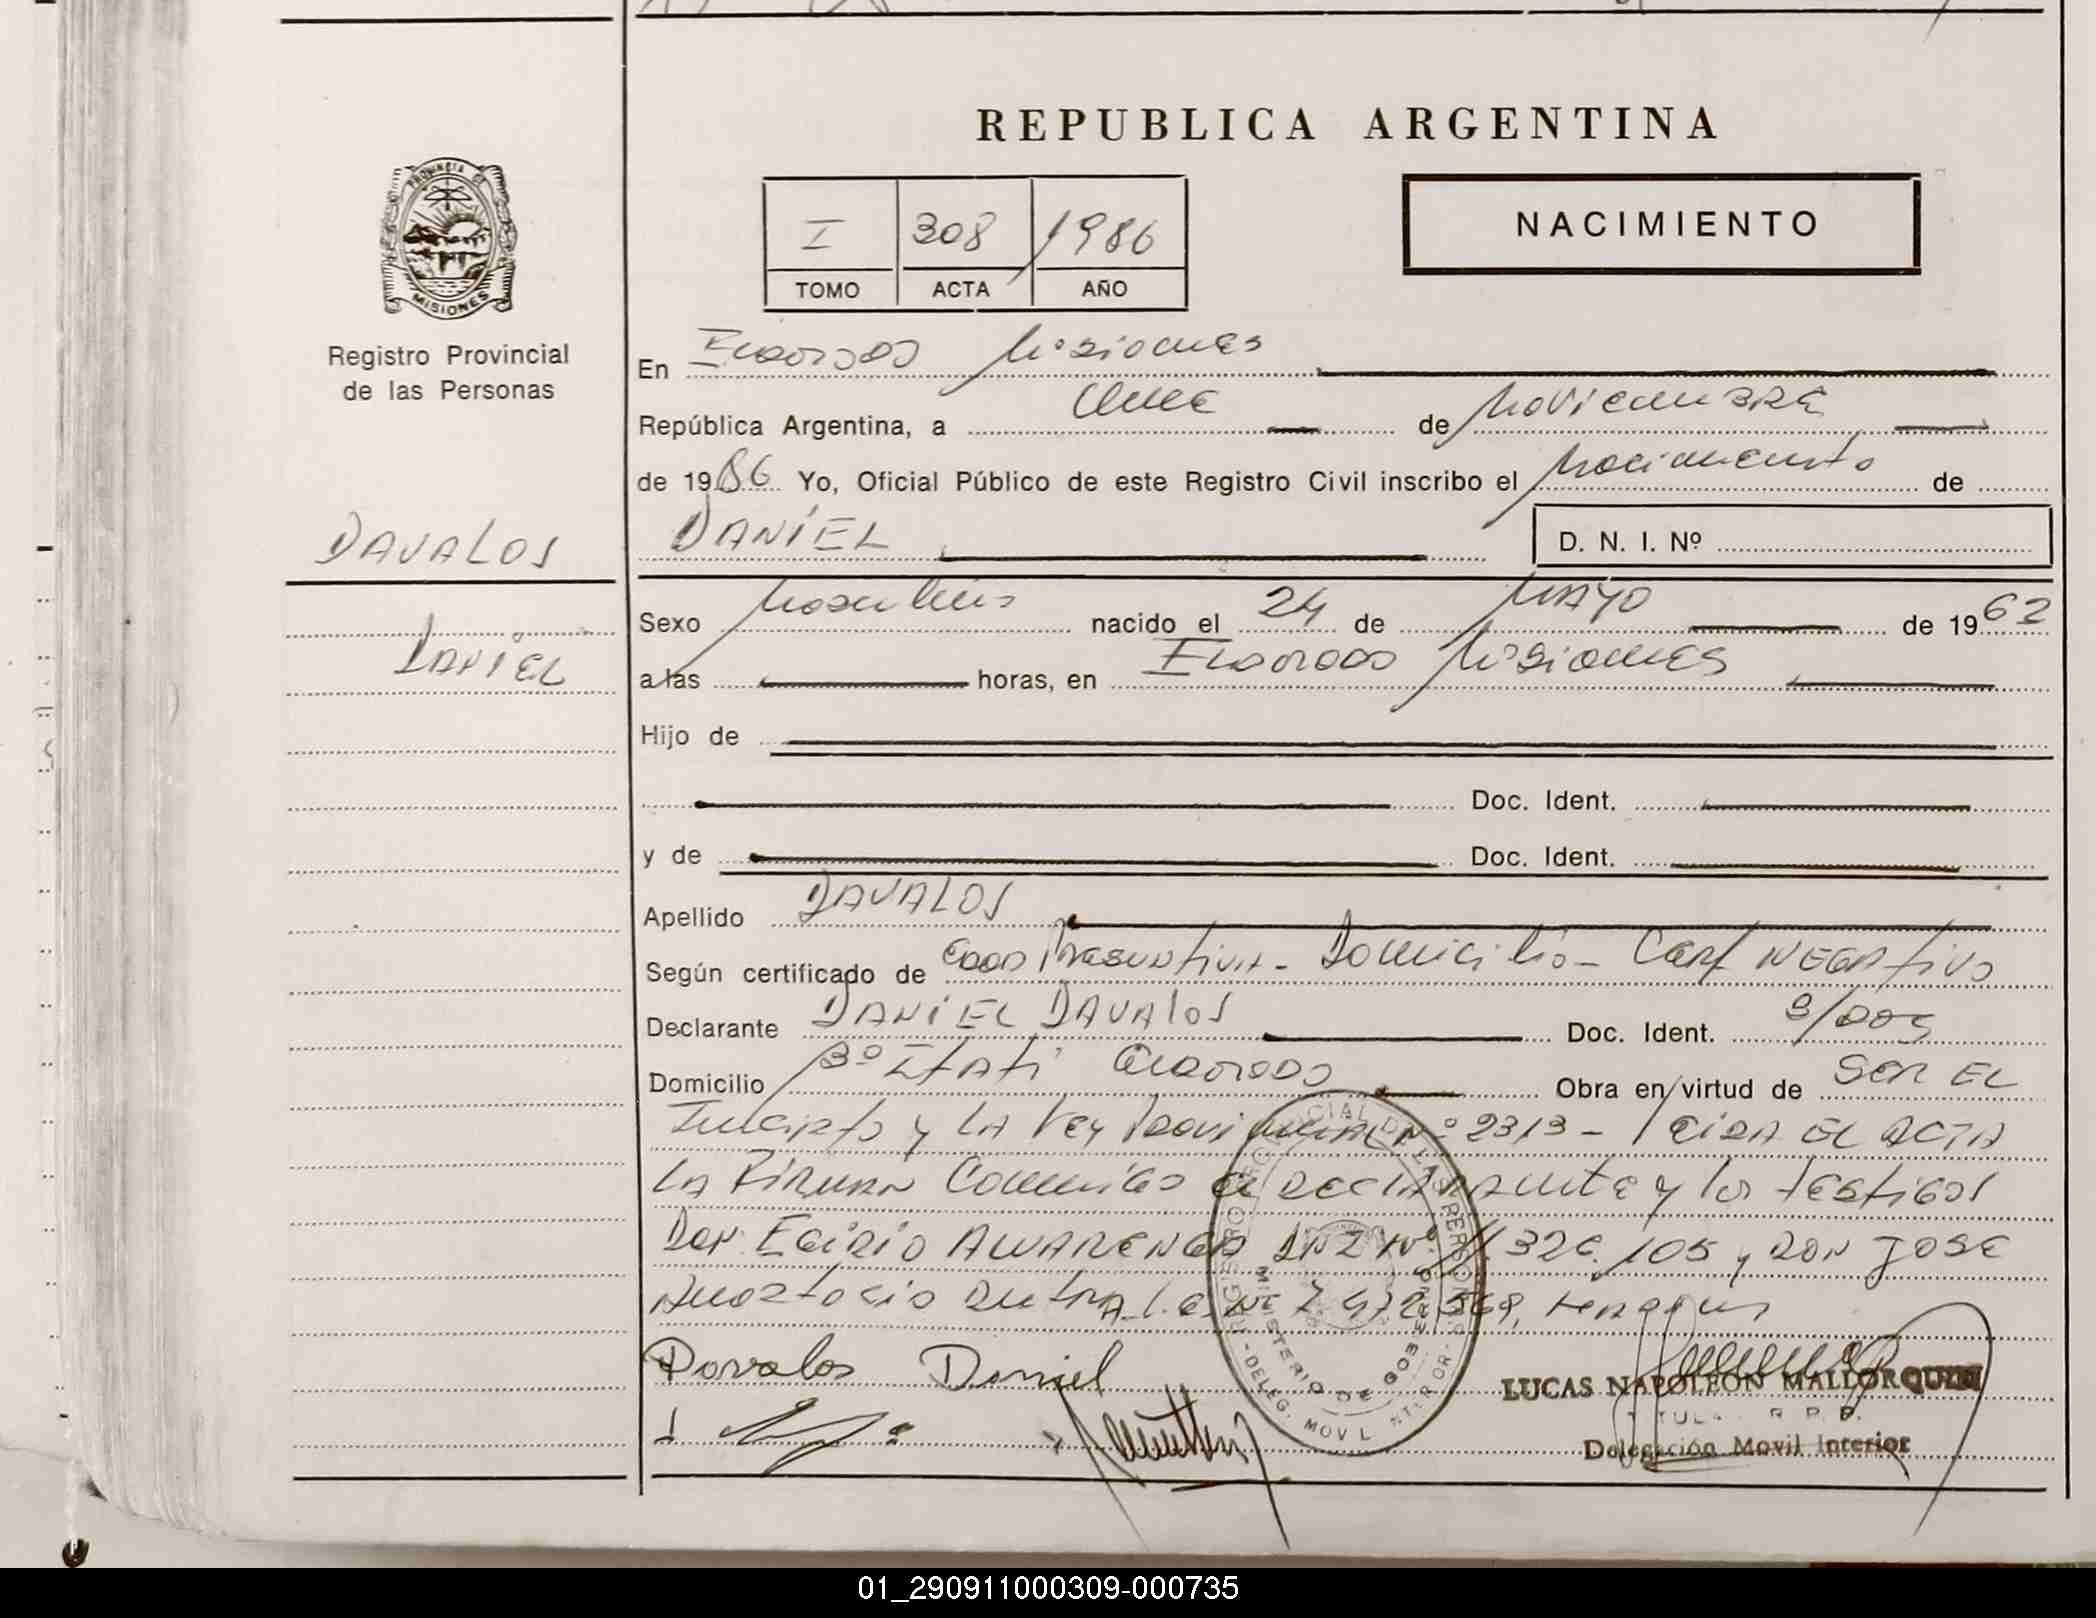 REPUBLICA ARGENTINA
PROVINCIA DE
MISIONES
Registro Provincial
de las Personas
I 308 1986
TOMO ACTA AÑO
NACIMIENTO
En Eldorado Misiones
República Argentina, a Once de Noviembre
de 1986 Yo, Oficial Público de este Registro Civil inscribo el Nacimiento de
DAVALOS
DANIEL
D. N. I. Nº
DANIEL
Sexo Masculino nacido el 24 de MAYO de 1962
a las horas, en Eldorado Misiones
Hijo de
Doc. Ident.
y de Doc. Ident.
Apellido DAVALOS
Según certificado de Edad Presuntiva - Domicilio - Cert NEGATIVO
Declarante DANIEL DAVALOS Doc. Ident. S/DOC
Domicilio Bº ITATI Eldorado Obra en virtud de SER EL
Inscripto y LA Ley Provincial Nº 2313 - LEIDA EL ACTA
LA FIRMAN Conmigo el DECLARANTE y los testigos
Don EGIDIO ALVARENGA DNI Nº 326.105 y DON JOSE
DUTRA L.E. Nº 7
Davalos Daniel
REGISTRO PROVINCIAL DE LAS PERSONAS
MINISTERIO DE GOBIERNO
- DELEG. MOVIL INTERIOR -
LUCAS NAPOLEON MALLORQUIN
TITULAR R. P. P.
Delegación Movil Interior
01_290911000309-000735